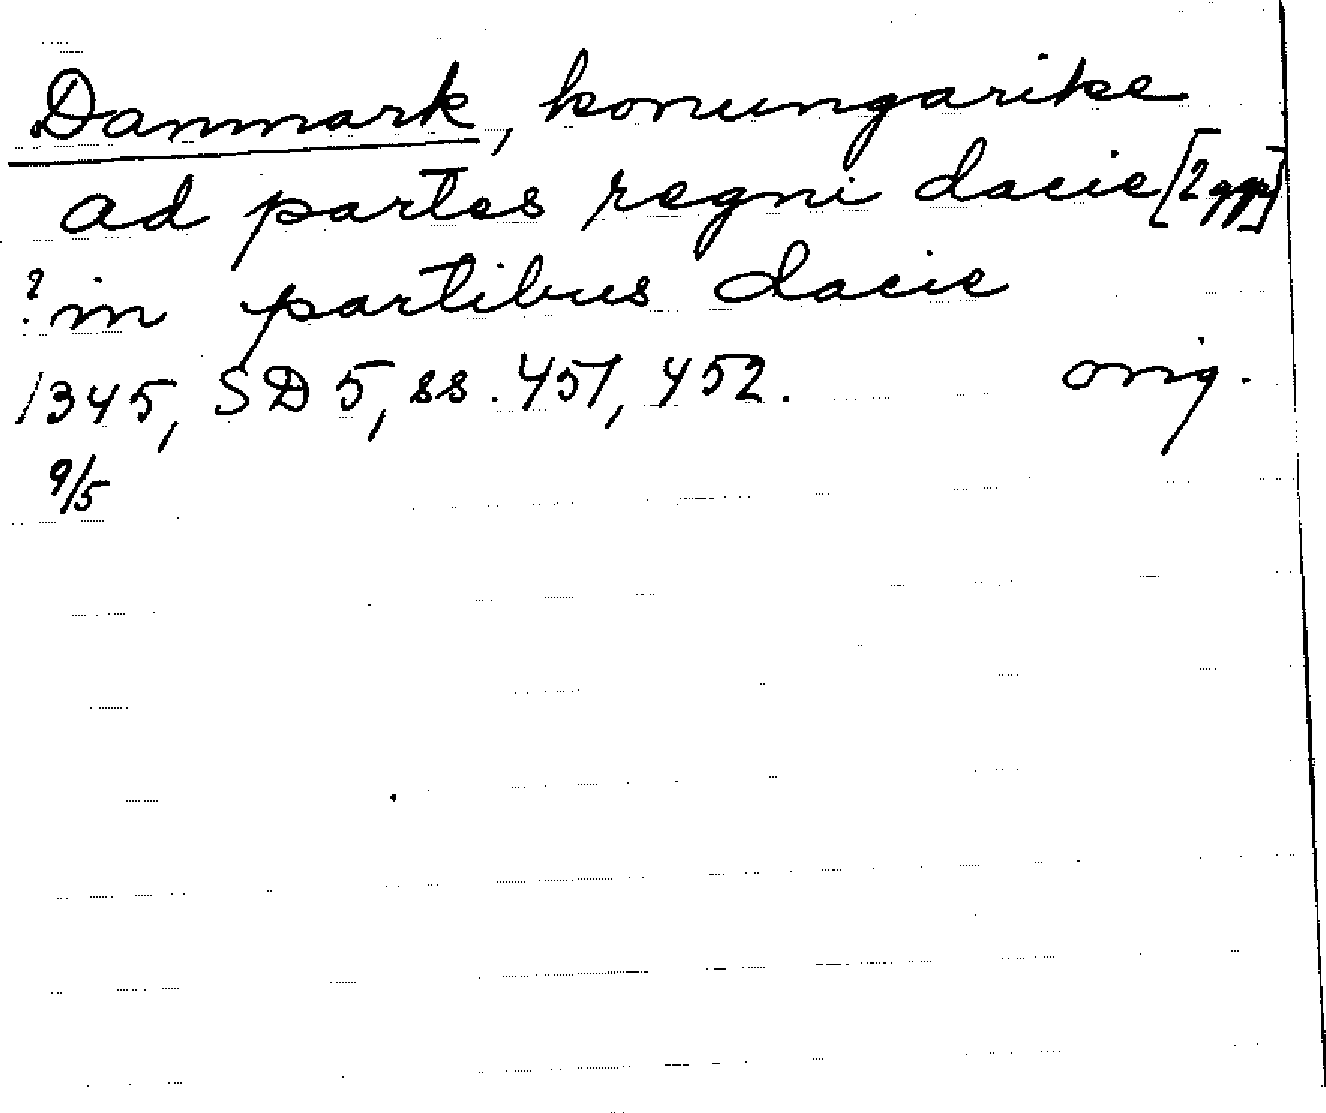 Danmark, konungarike
ad partes regni dacie [2 ggr]
? in partibus dacie
1345, SD 5, ss. 451, 452. orig.
9/5